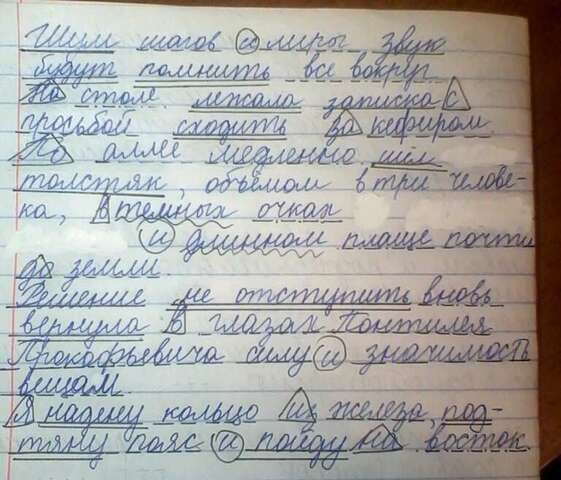 Шум шагов и лиры звук
будут помнить все вокруг.
На столе лежала записка с
просьбой сходить за кефиром.
По аллее медленно шёл
толстяк, объёмом в три челове-
ка, в темных очках
и длинном плаще почти
до земли.
Решение не отступить вновь
вернула в глазах Понтилея
Прокафьевича силу и значимость
вещам.
Я надену кольцо из железа, под-
тяну пояс и пойду на восток.